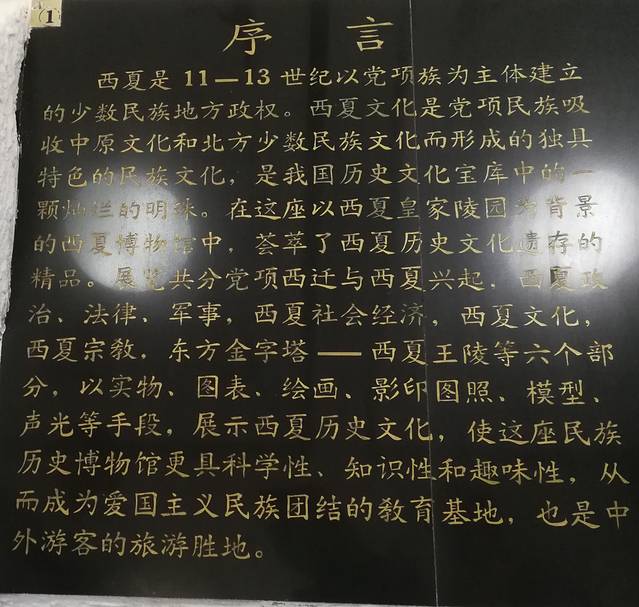 1
序 言
西夏是 11—13 世纪以党项族为主体建立
的少数民族地方政权。西夏文化是党项民族吸
收中原文化和北方少数民族文化而形成的独具
特色的民族文化，是我国历史文化宝库中的一
颗灿烂的明珠。在这座以西夏皇家陵园为背景
的西夏博物馆中，荟萃了西夏历史文化遗存的
精品。展览共分党项西迁与西夏兴起，西夏政
治、法律、军事，西夏社会经济，西夏文化，
西夏宗教，东方金字塔——西夏王陵等六个部
分，以实物、图表、绘画、影印图照、模型、
声光等手段，展示西夏历史文化，使这座民族
历史博物馆更具科学性、知识性和趣味性，从
而成为爱国主义民族团结的教育基地，也是中
外游客的旅游胜地。